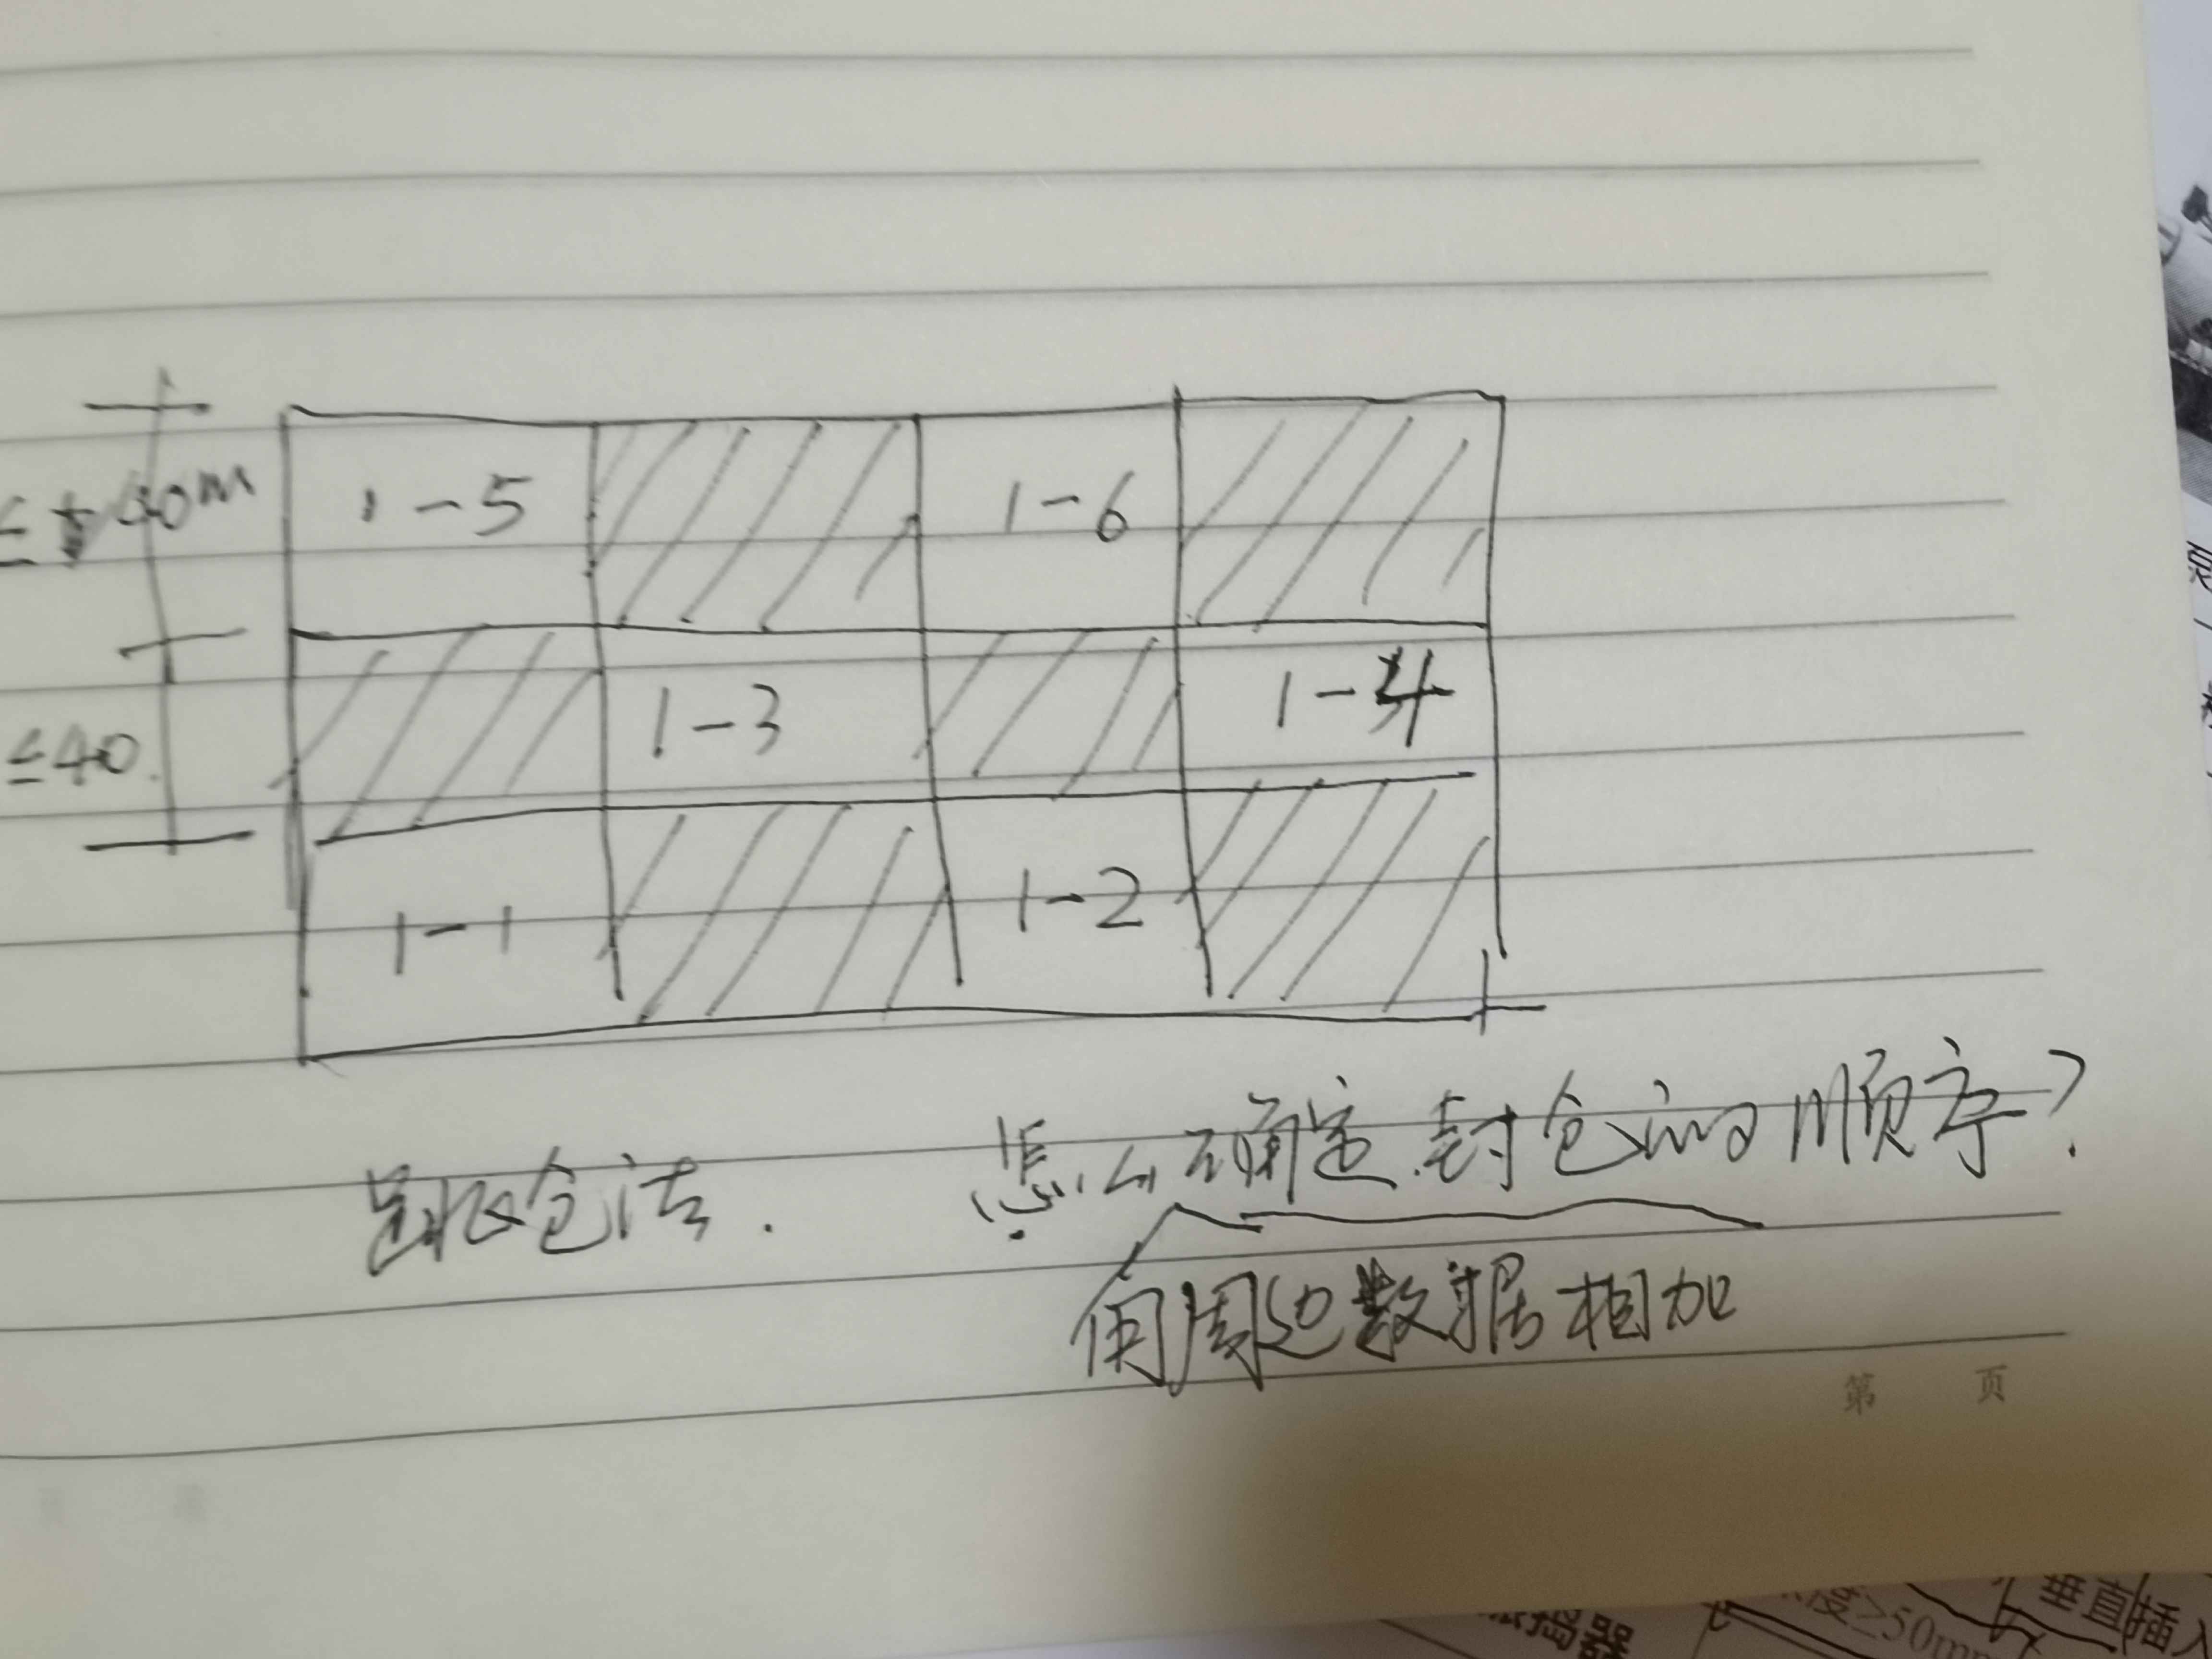 ≤ 40m
1-5
1-6
≤40
1-3
1-4
1-1
1-2
跳仓法.
怎么确定封仓的顺序?
用周边数据相加
第 页
垂直插入
振捣器
度≥50mm